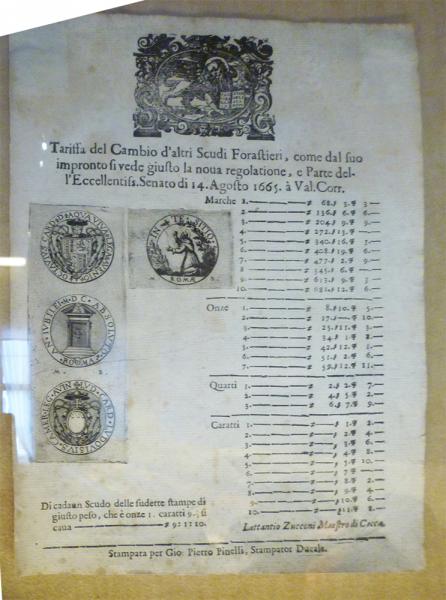 Tariffa del Cambio d'altri Scudi Forastieri, come dal suo
impronto si vede giusto la noua regolatione, e Parte del-
l'Eccellentiss. Senato di 14. Agosto 1665. à Val. Corr.
Marche 1. 68. 3. 3
2. 136. 6. 6
3. 204. 9. 9
4. 272. 13.
5. 340. 16.
6. 408. 19. 6
7. 477. 2. 9
8. 545. 6.
9. 613. 9.
10. 681. 12. 6
Onze 1. 8. 10. 5
2. 17. 10.
3. 25. 11. 3
4. 34. 1. 8
5. 42. 12. 1
6. 51. 2. 6
7. 59. 12. 11.
Quarti 1. 2. 2. 7
2. 4. 5. 2
3. 6. 7. 9
Caratti 1. 1. 2
2. 2.
3. 3. 6
4. 4. 8
5. 5. 10
6. 7.
7. 8. 2
8. 9. 4
9. 10. 6
10. 11. 8
IN TE SITIO
ROMÆ
Di cadaun Scudo delle sudette stampe di
giusto peso, che è onze 1. caratti 9. si
caua 9: 1: 10.
Lattantio Zucconi Maestro di Cecca.
Stampata per Gio: Pietro Pinelli, Stampator Ducale.